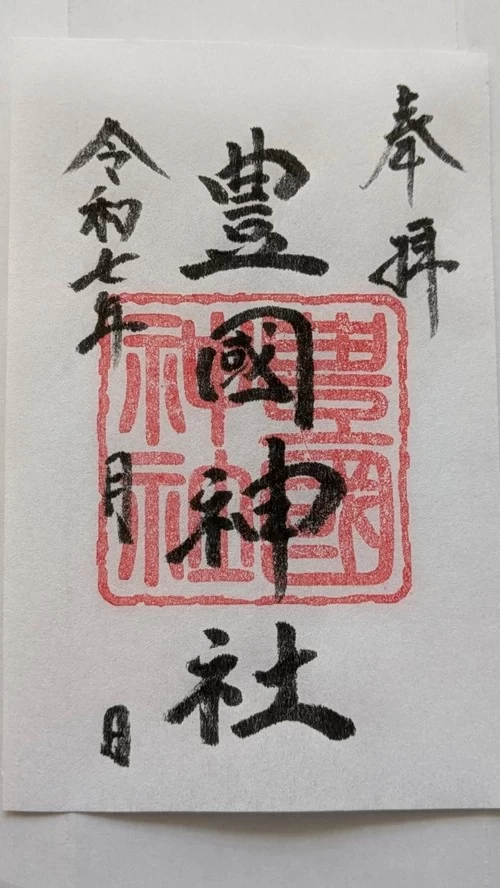 奉拝
豊國神社
豊國神社
令和七年 月 日